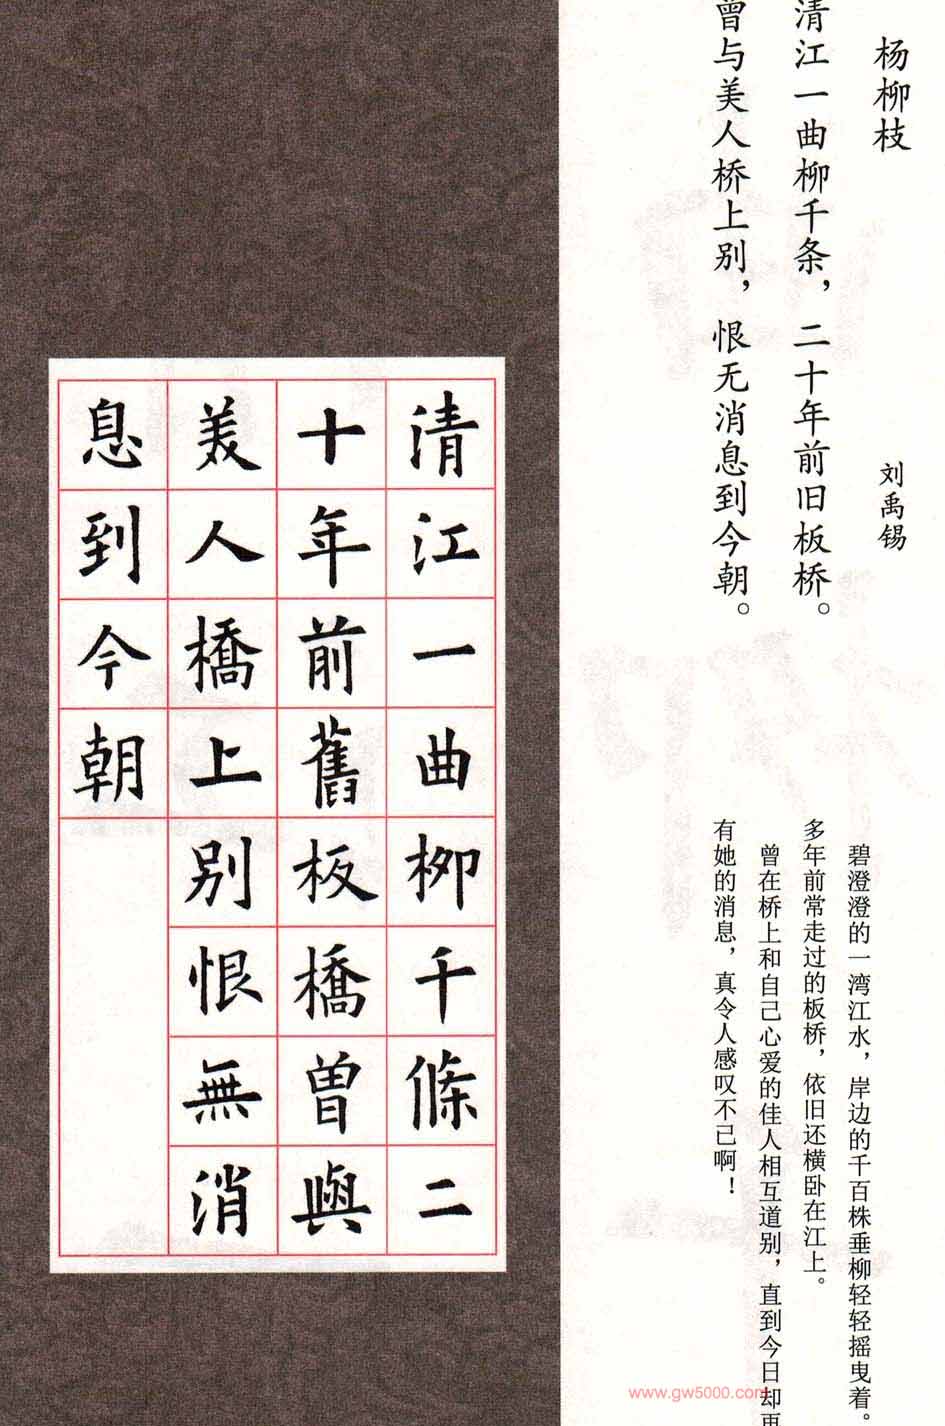 杨柳枝
刘禹锡
清江一曲柳千条，二十年前旧板桥。
曾与美人桥上别，恨无消息到今朝。
碧澄澄的一湾江水，岸边的千百株垂柳轻轻摇曳着。
多年前常走过的板桥，依旧还横卧在江上。
曾在桥上和自己心爱的佳人相互道别，直到今日却再
有她的消息，真令人感叹不已啊！
清江一曲柳千條二
十年前舊板橋曾與
美人橋上別恨無消
息到今朝
www.gw5000.com